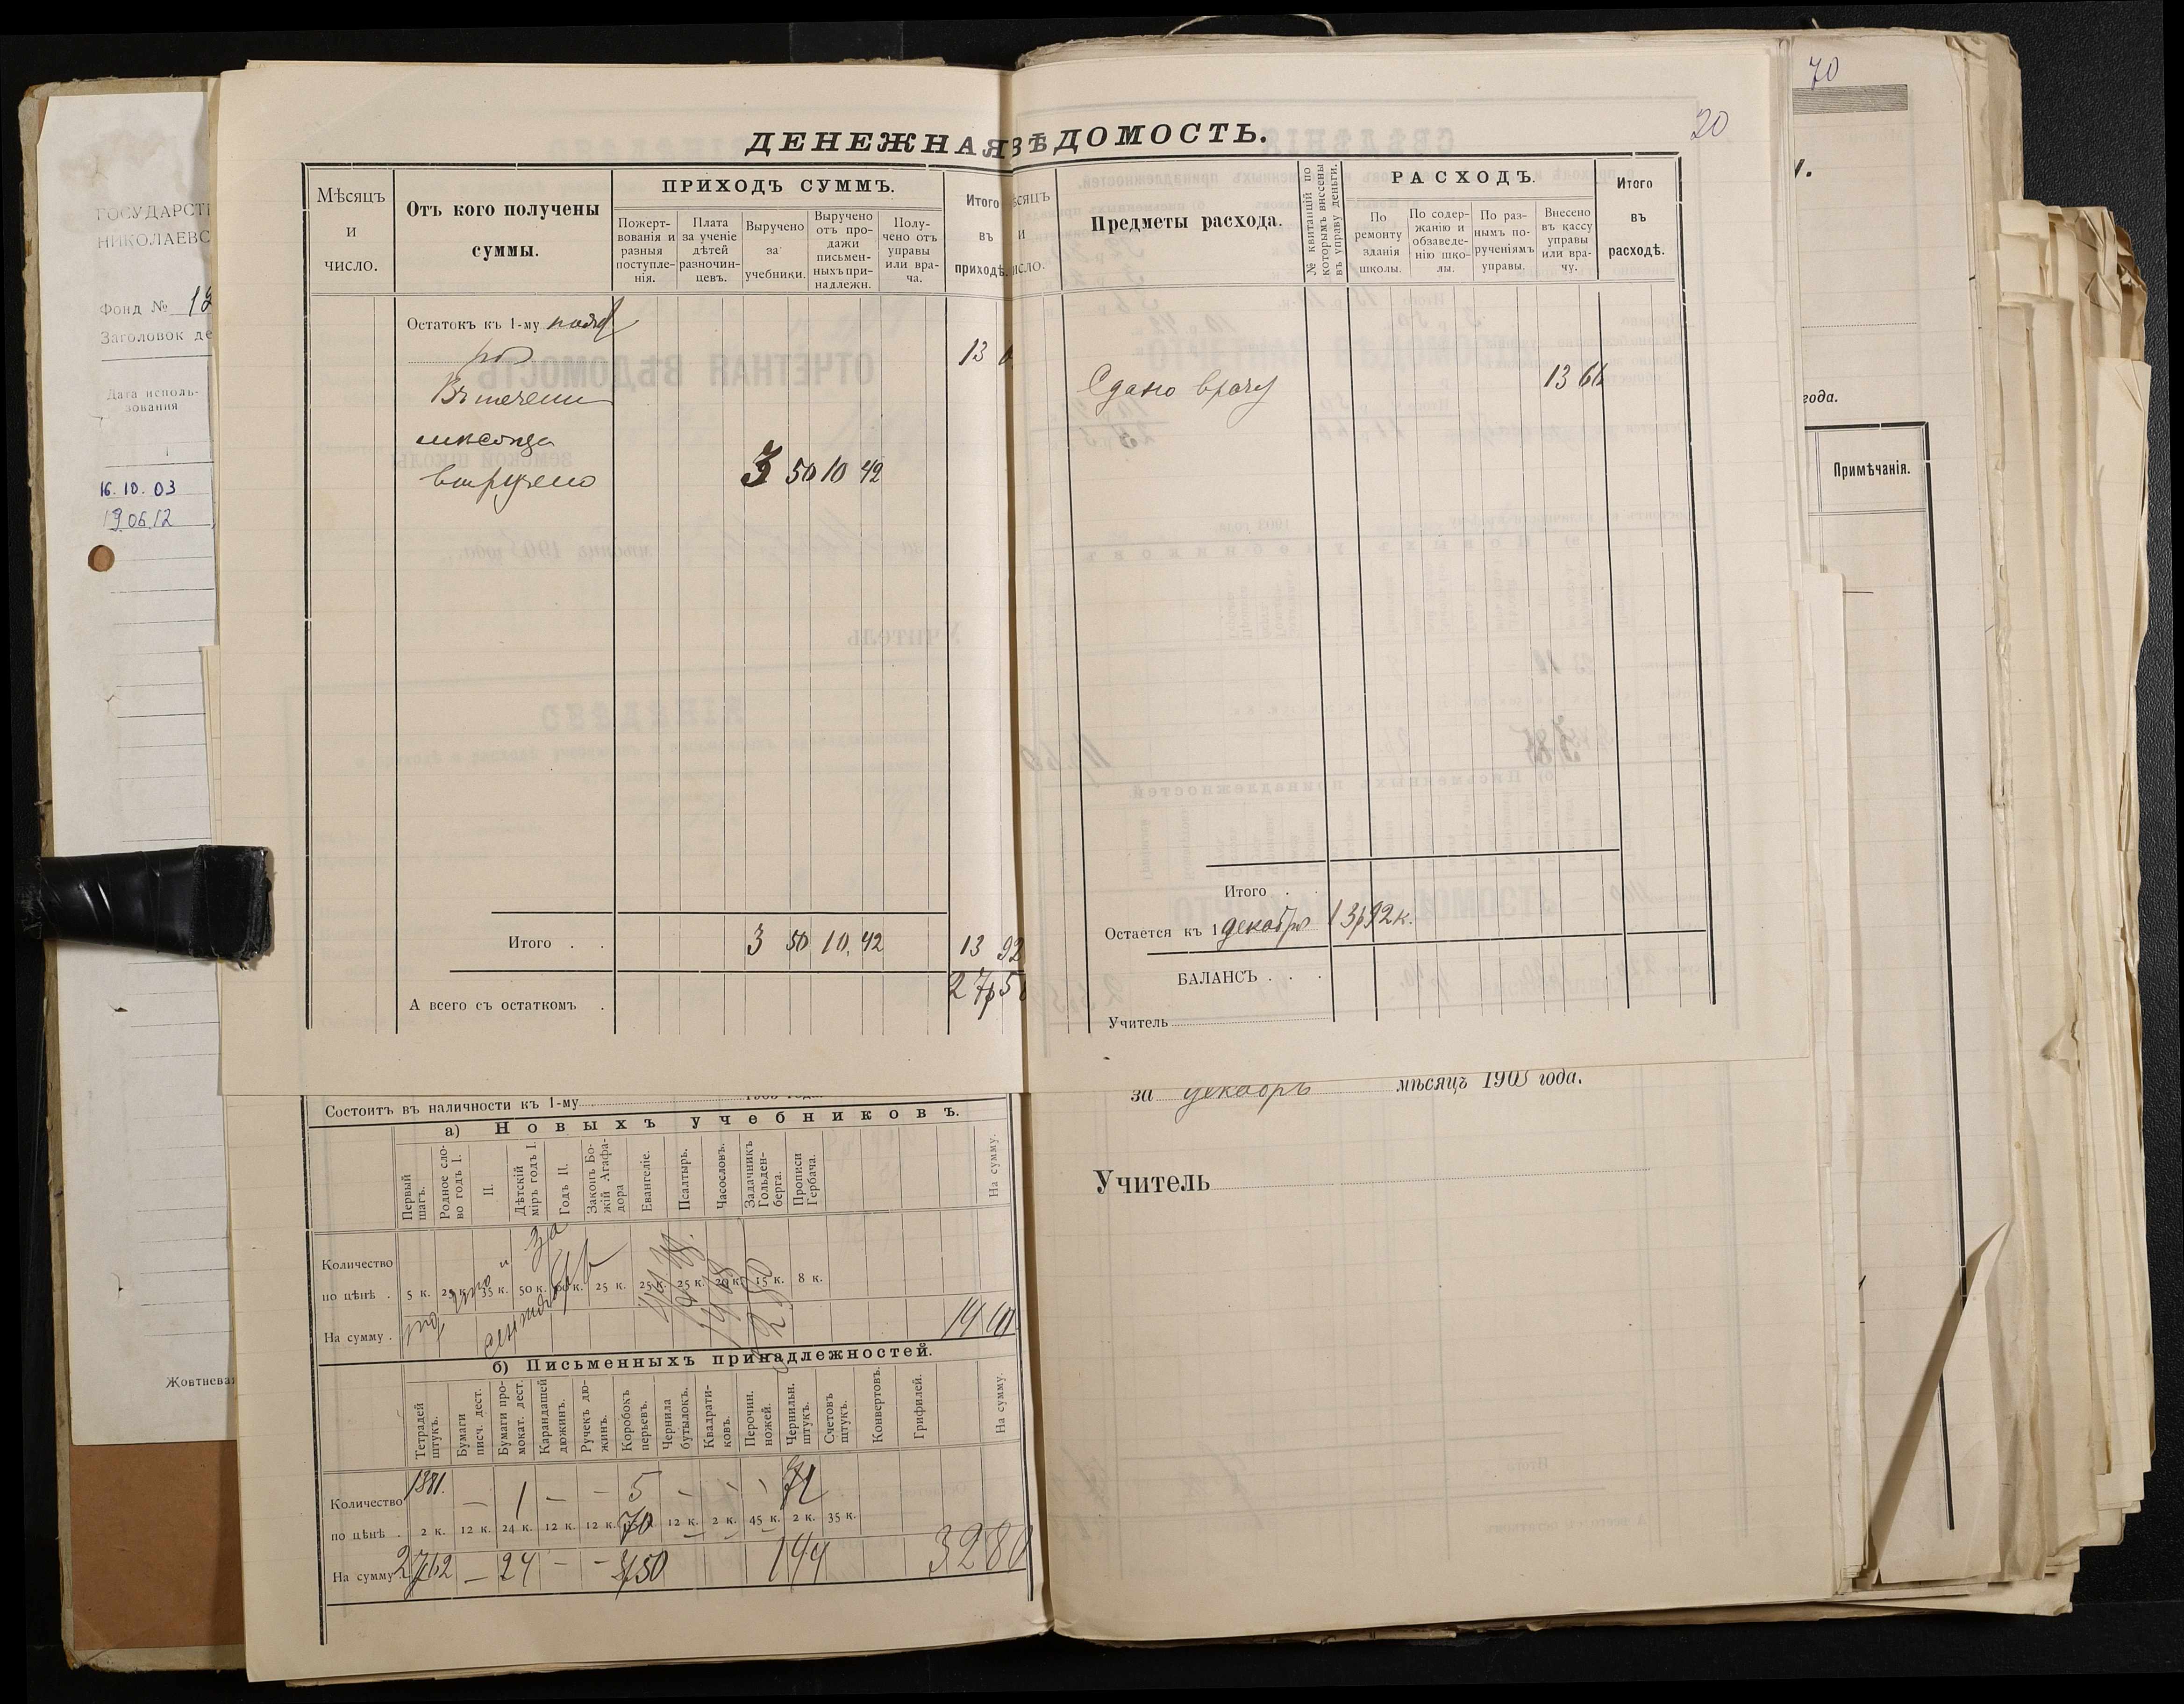 ДЕНЕЖНАЯ ВѢДОМОСТЬ.
20
70
Мѣсяцъ и число.
Отъ кого получены суммы.
ПРИХОДЪ СУММЪ.
Пожертвованія и разныя поступленія.
Плата за ученіе дѣтей разночинцевъ.
Выручено за учебники.
Выручено отъ продажи письменныхъ принадлежн.
Получено отъ управы или врача.
Итого въ приходѣ.
Остатокъ къ 1-му ноября
13
Въ течении
месяца
выручено 3 50 10 42
Итого . . 3 50 10 42 13 92
А всего съ остаткомъ .
ѣсяцъ и исло.
Предметы расхода.
№ квитанцій по которымъ внесены въ управу деньги.
РАСХОДЪ.
По ремонту зданія школы.
По содержанію и обзаведенію школы.
По разнымъ порученіямъ управы.
Внесено въ кассу управы или врачу.
Итого въ расходѣ.
Сдано врачу 13 66
Итого . .
Остается къ 1 декабря 13р92к.
БАЛАНСЪ . . .
Учитель
Состоитъ въ наличности къ 1-му
а) Новыхъ учебниковъ.
Первый шагъ.
Родное слово годъ I.
II.
Дѣтскій міръ годъ I.
Годъ II.
Законъ Божій Агафадора
Евангеліе.
Псалтырь.
Часословъ.
Задачникъ Гольденберга.
Прописи Гербача.
На сумму.
Количество
по цѣнѣ . 5 к. 25 к. 35 к. 50 к. 60 к. 25 к. 25 к. 25 к. 20 к. 15 к. 8 к.
На сумму .
б) Письменныхъ принадлежностей.
Тетрадей штукъ.
Бумаги писч. дест.
Бумаги промокат. дест.
Карандашей дюжинъ.
Ручекъ дюжинъ.
Коробокъ перьевъ.
Чернила бутылокъ.
Квадратиковъ.
Перочин. ножей.
Чернильн. штукъ.
Счетовъ штукъ.
Конвертовъ.
Грифилей.
На сумму.
Количество 1381. — 1 — — 5 — - - 72
по цѣнѣ . 2 к. 12 к. 24 к. 12 к. 12 к. 70 12 к. 2 к. 45 к. 2 к. 35 к.
На сумму 2762 — 24 — — 350 144 3280
за декабрь мѣсяцъ 1903 года.
Учитель
года.
Примѣчанія.
ГОСУДАРСТ
НИКОЛАЕВС
Фонд № 12
Заголовок де
Дата использования
1
16.10.03
19.06.12
Жовтнева